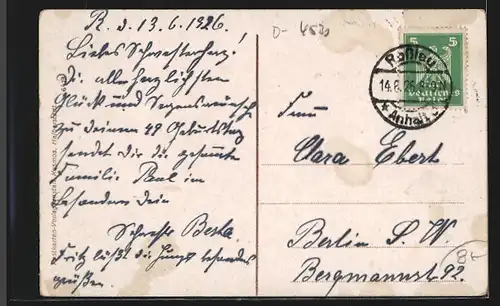 R. d. 13.6.1926.
Liebes Schwesterherz!
Die allerherzlichsten
Glück und Segenswünsche
zu deinem 49 Geburtstag
sendet dir die gesammte
Familie
besonders dein
Schwester Berta.
Fritz läßt die Jungs besonders
grüßen.
D- 4530
5 5
Roßlau
14.6.26.
Deutsches
Reich
* Anhalt
Frau
Clara Ebert
Berlin S. W.
Bergmannst 92.